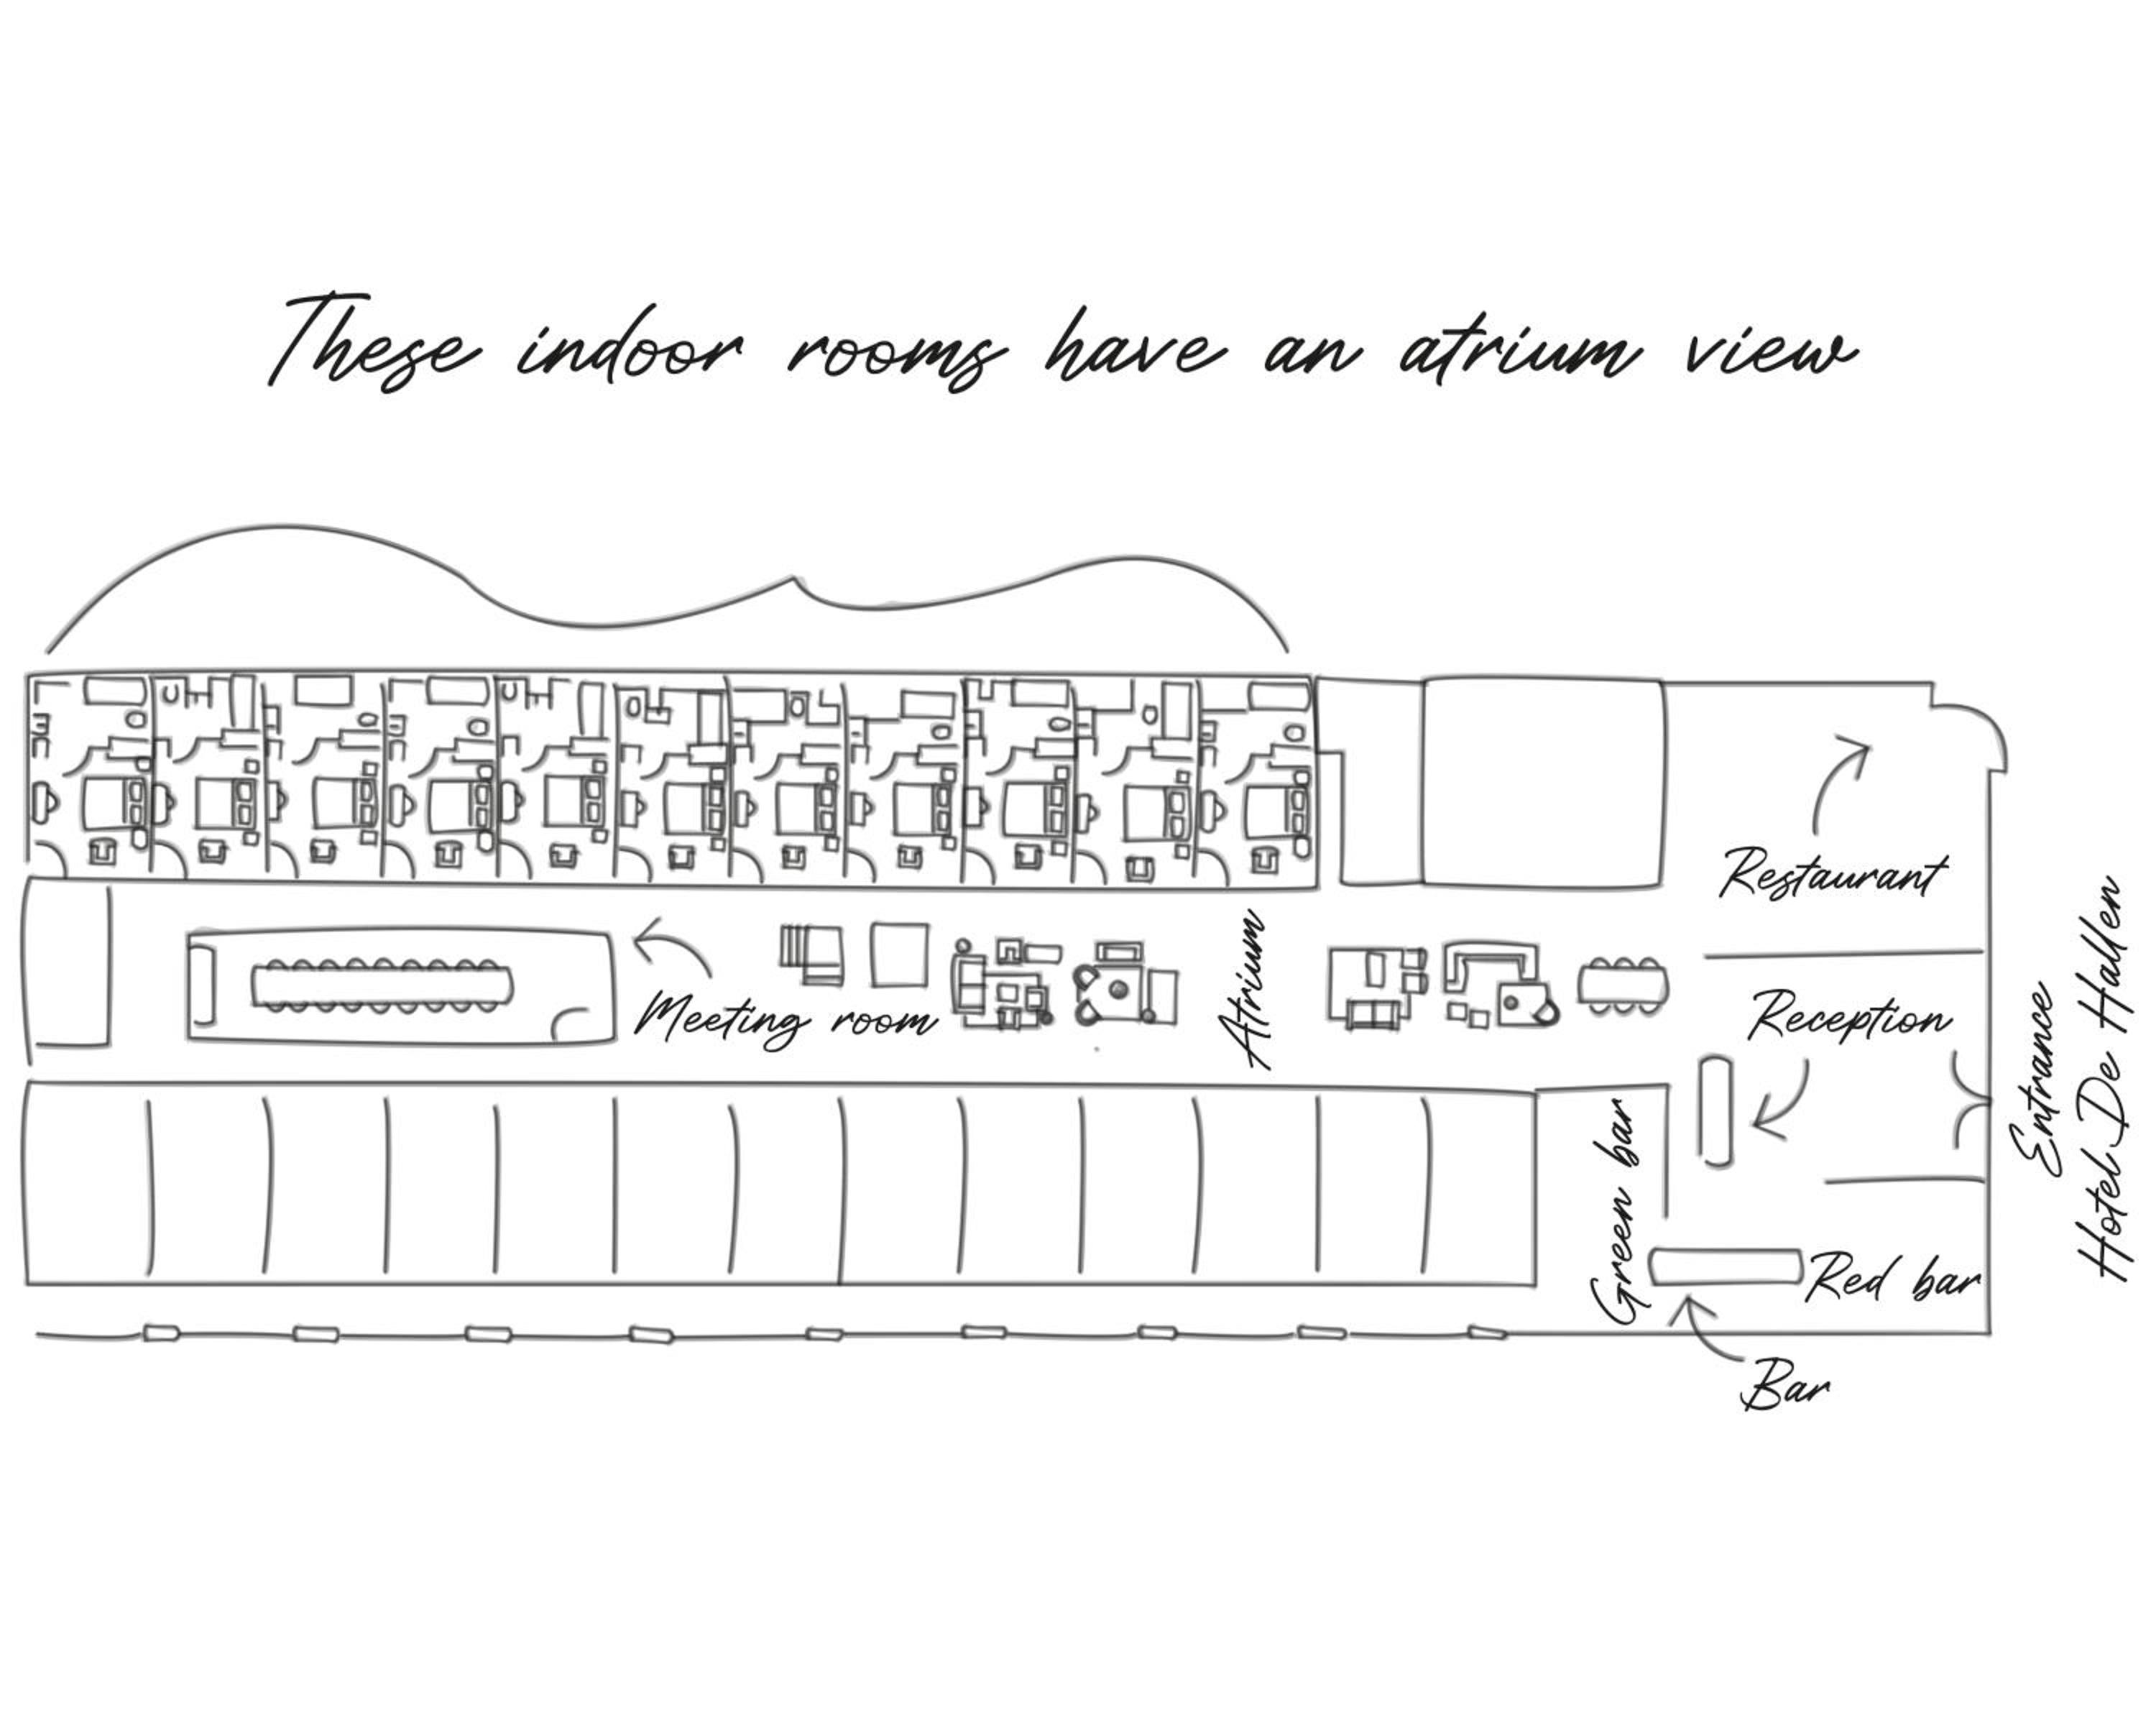 These indoor rooms have an atrium view
Restaurant
Meeting room
Atrium
Reception
Entrance
Hotel De Hallen
Green bar
Red bar
Bar